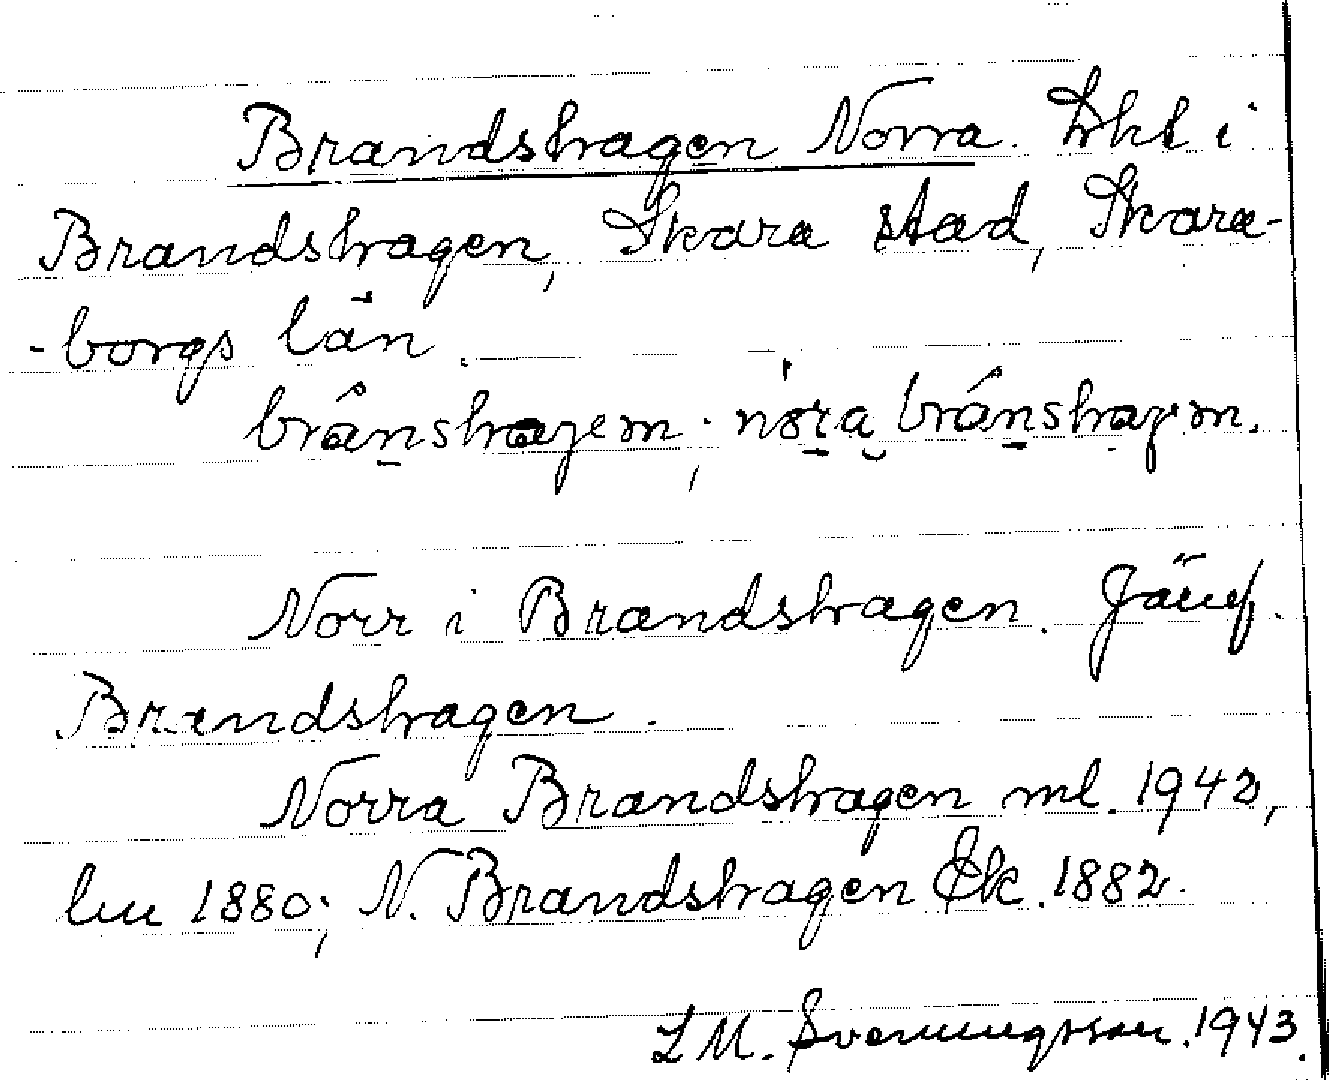 Brandshagen Norra. Lht i
Brandshagen, Skara stad, Skara-
-borgs län.
brânshagem; nọra brânshagm.
Norr i Brandshagen. Jämf.
Brandshagen.
Norra Brandshagen ml. 1942,
lm 1880; N. Brandshagen Ek. 1882.
L M. Svenungsson. 1943.